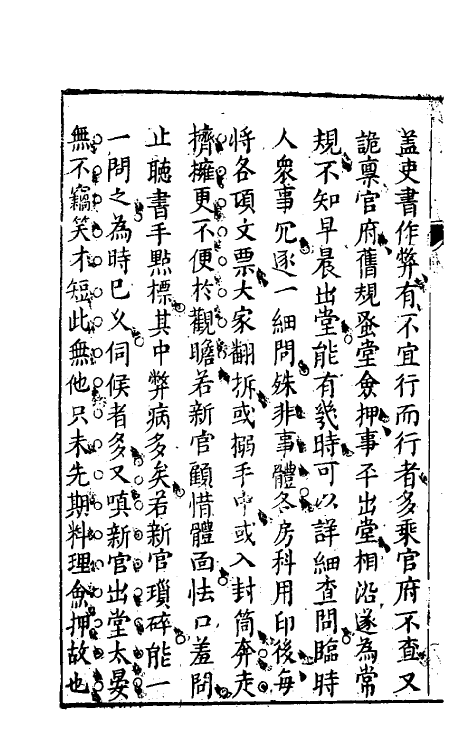 蓋吏書作弊有不宜行而行者多乘官府不查又
詭禀官府舊規蚤堂僉押事于出堂相沿遂為常
規不知早晨出堂能有幾時可以詳細查問臨時
人衆事冗逐一細問殊非事體各房科用印後每
将各項文票大家翻拆或搦手中或入封筒奔走
擠擁更不便於觀瞻若新官顧惜體面怯口羞問
止聽書手點標其中弊病多矣若新官瑣碎能一
一問之為時已久伺候者多又嗔新官出堂太晏
無不竊笑才短此無他只未先期料理僉押故也